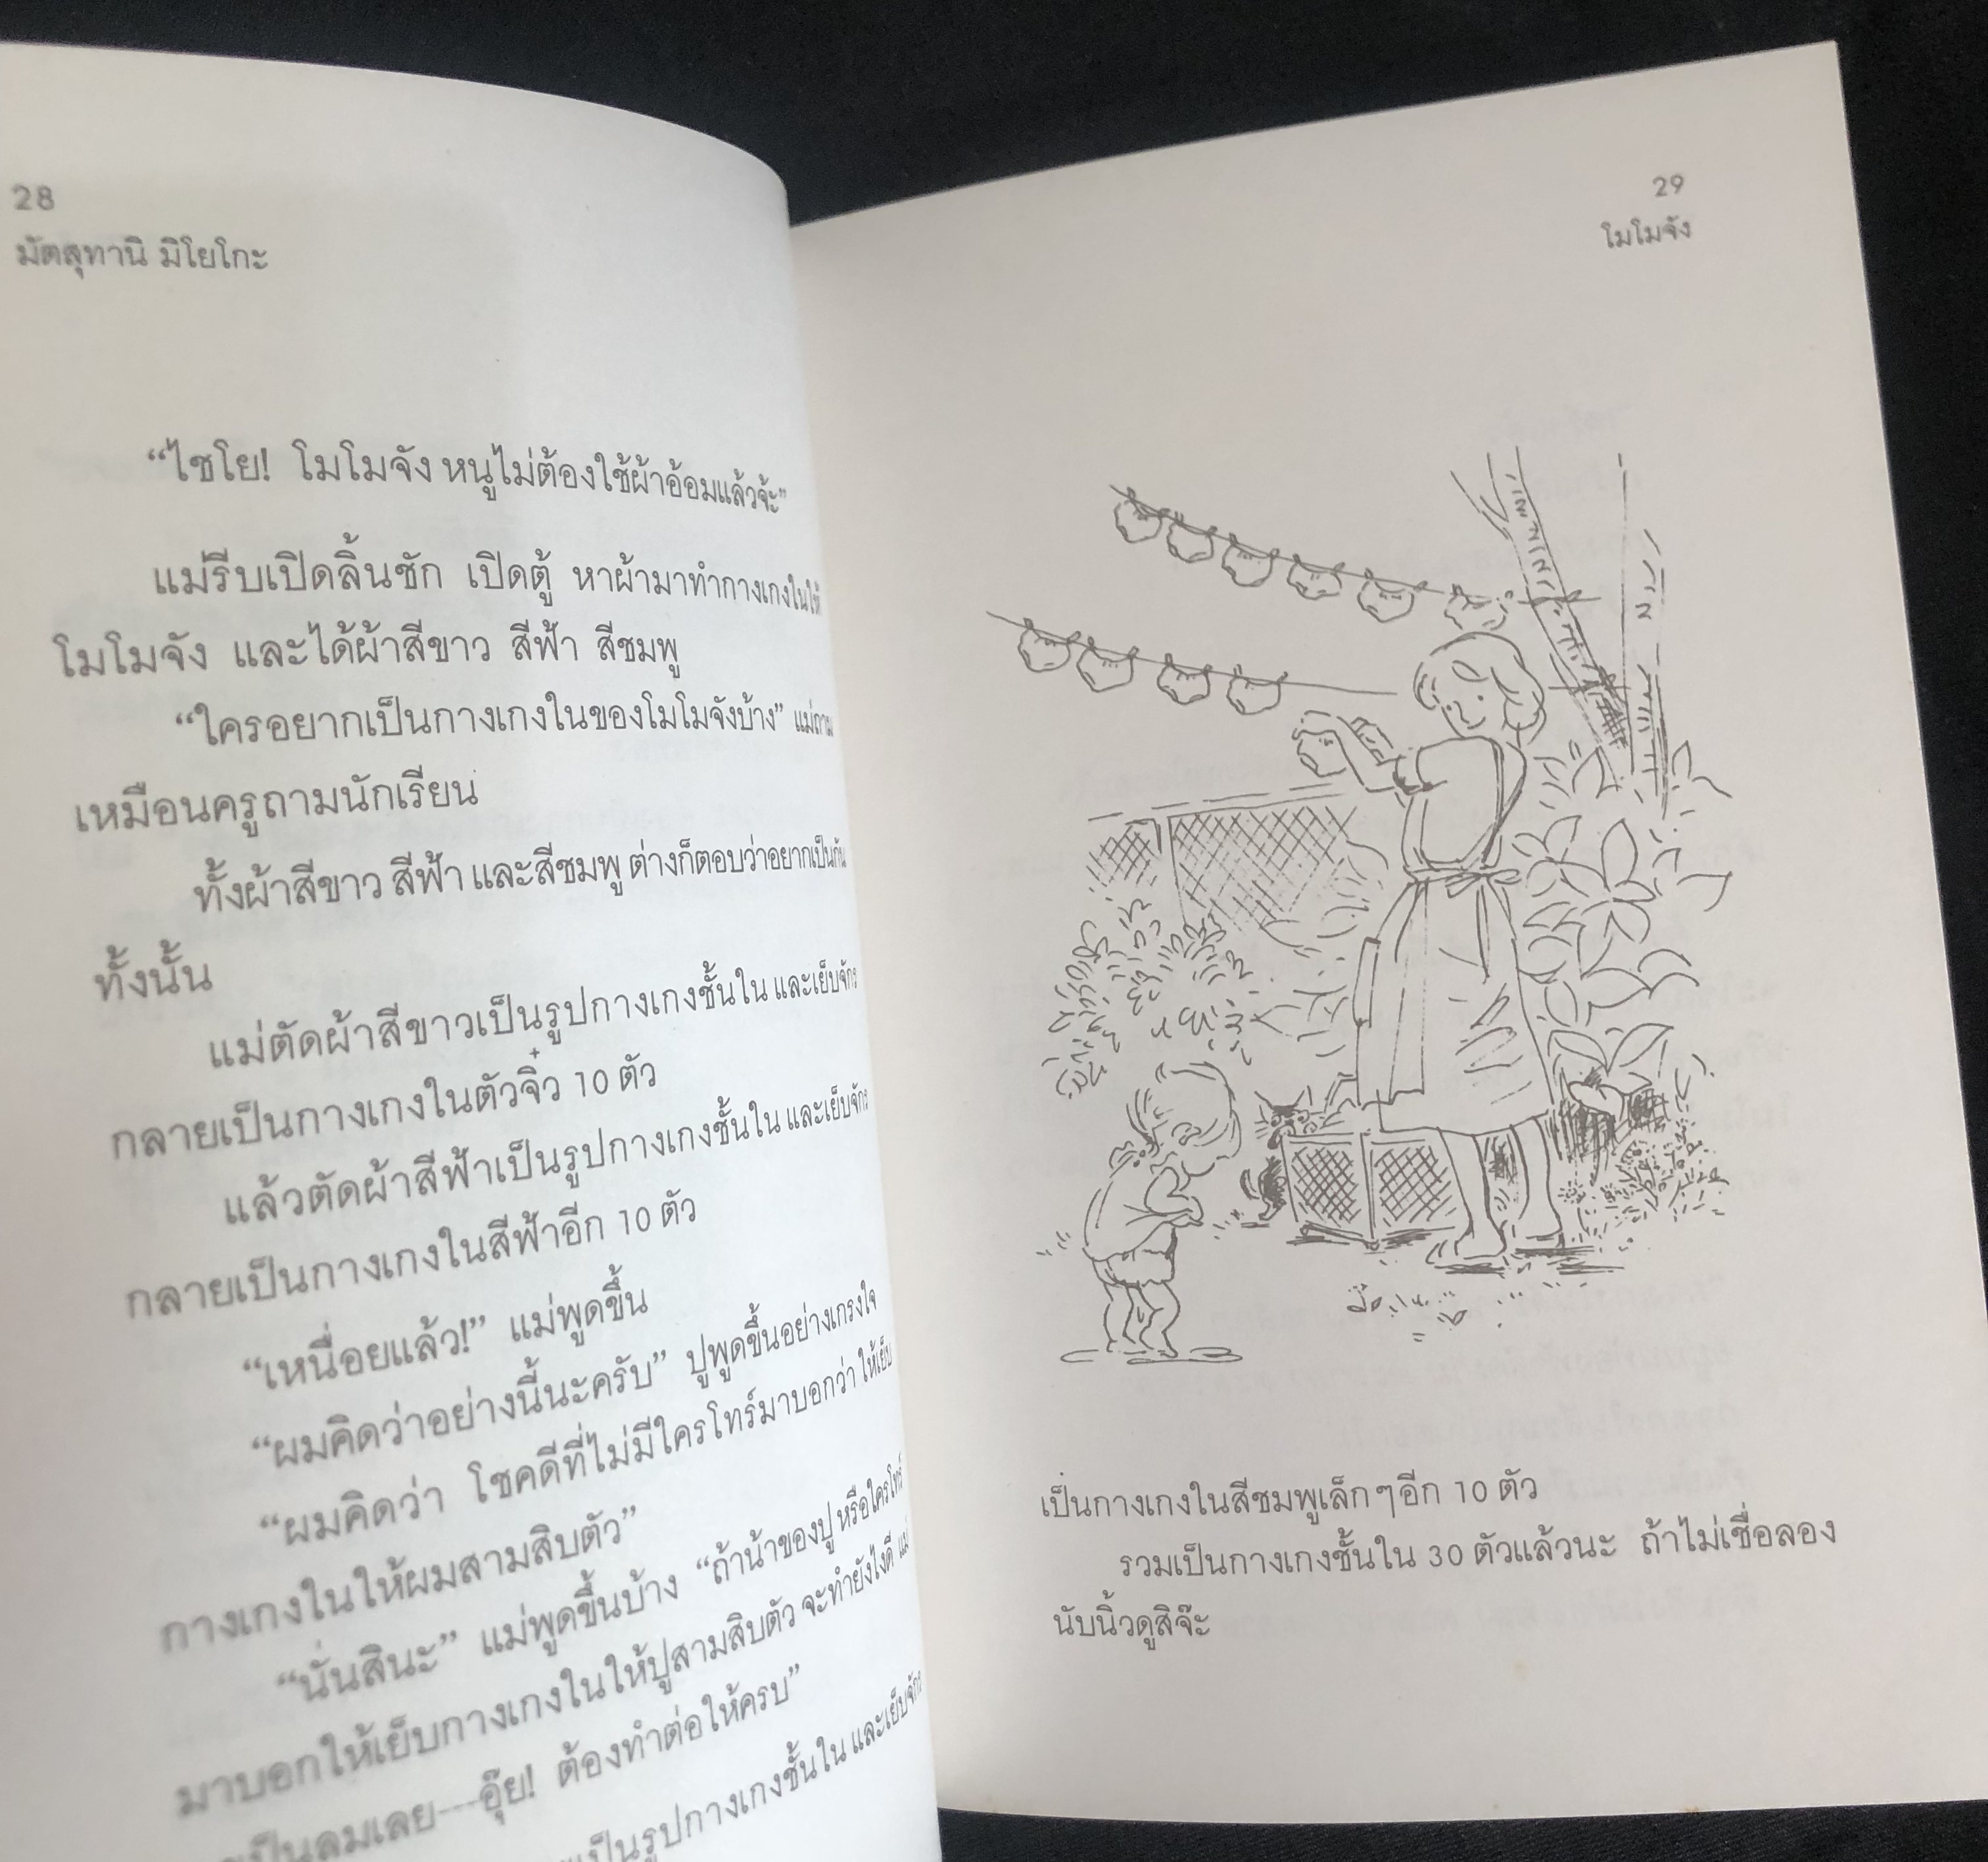 28
มัตสุทานิ มิโยโกะ
“ไชโย! โมโมจัง หนูไม่ต้องใช้ผ้าอ้อมแล้วจ้ะ”
แม่รีบเปิดลิ้นชัก เปิดตู้ หาผ้ามาทำกางเกงในให้
โมโมจัง และได้ผ้าสีขาว สีฟ้า สีชมพู
“ใครอยากเป็นกางเกงในของโมโมจังบ้าง” แม่ถาม
เหมือนครูถามนักเรียน
ทั้งผ้าสีขาว สีฟ้า และสีชมพู ต่างก็ตอบว่าอยากเป็นกัน
ทั้งนั้น
แม่ตัดผ้าสีขาวเป็นรูปกางเกงชั้นใน และเย็บจักร
กลายเป็นกางเกงในตัวจิ๋ว 10 ตัว
แล้วตัดผ้าสีฟ้าเป็นรูปกางเกงชั้นใน และเย็บจักร
กลายเป็นกางเกงในสีฟ้าอีก 10 ตัว
“เหนื่อยแล้ว!” แม่พูดขึ้น
“ผมคิดว่าอย่างนี้นะครับ” ปูพูดขึ้นอย่างเกรงใจ
“ผมคิดว่า โชคดีที่ไม่มีใครโทร์มาบอกว่า ให้เย็บ
กางเกงในให้ผมสามสิบตัว”
“นั่นสินะ” แม่พูดขึ้นบ้าง “ถ้าน้าของปู หรือใครโทร์
มาบอกให้เย็บกางเกงในให้ปูสามสิบตัว จะทำยังไงดี แม่
เป็นลมเลย---อุ๊ย! ต้องทำต่อให้ครบ”
เป็นรูปกางเกงชั้นใน และเย็บจักร
29
โมโมจัง
เป็นกางเกงในสีชมพูเล็กๆอีก 10 ตัว
รวมเป็นกางเกงชั้นใน 30 ตัวแล้วนะ ถ้าไม่เชื่อลอง
นับนิ้วดูสิจ๊ะ